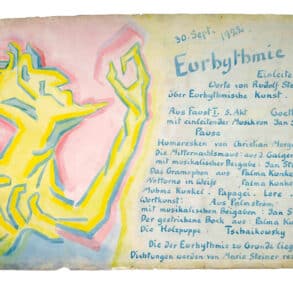 30. Sept. 1923.
Eurhythmie
Einleite
Worte von Rudolf Ste
über Eurhythmische Kunst.
Aus Faust I, 3. Akt Goet
mit einleitender Musik von Jan S
Pause
Humoresken von Christian Morge
Die Mitternachtsmaus: aus d. Galgen
mit musikalischer Beigabe: Jan St
Das Gramophon aus Palma Kunke
Notturno in Weiss Palma Kunkel
Muhme Kunkel. Papagei. Lore.
Wortkunst: Aus Palmström
mit musikalischen Beigaben: Jan S
Der gestrichene Bock aus Palma Ku
Die Holzpuppe: Tschaikowsky
Die der Eurhythmie zu Grunde lieg
Dichtungen werden von Marie Steiner rez